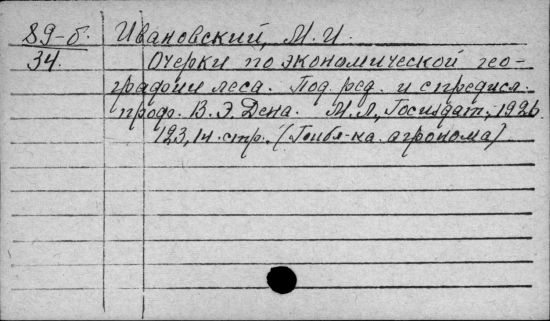 89-б. Ивановский, М. И.
34. Очерки по экономической гео-
графии леса. Под. ред. и с предисл.
проф. В. Э. Дена. М. Л., Госиздат, 1926
123, 14. стр.
агронома)